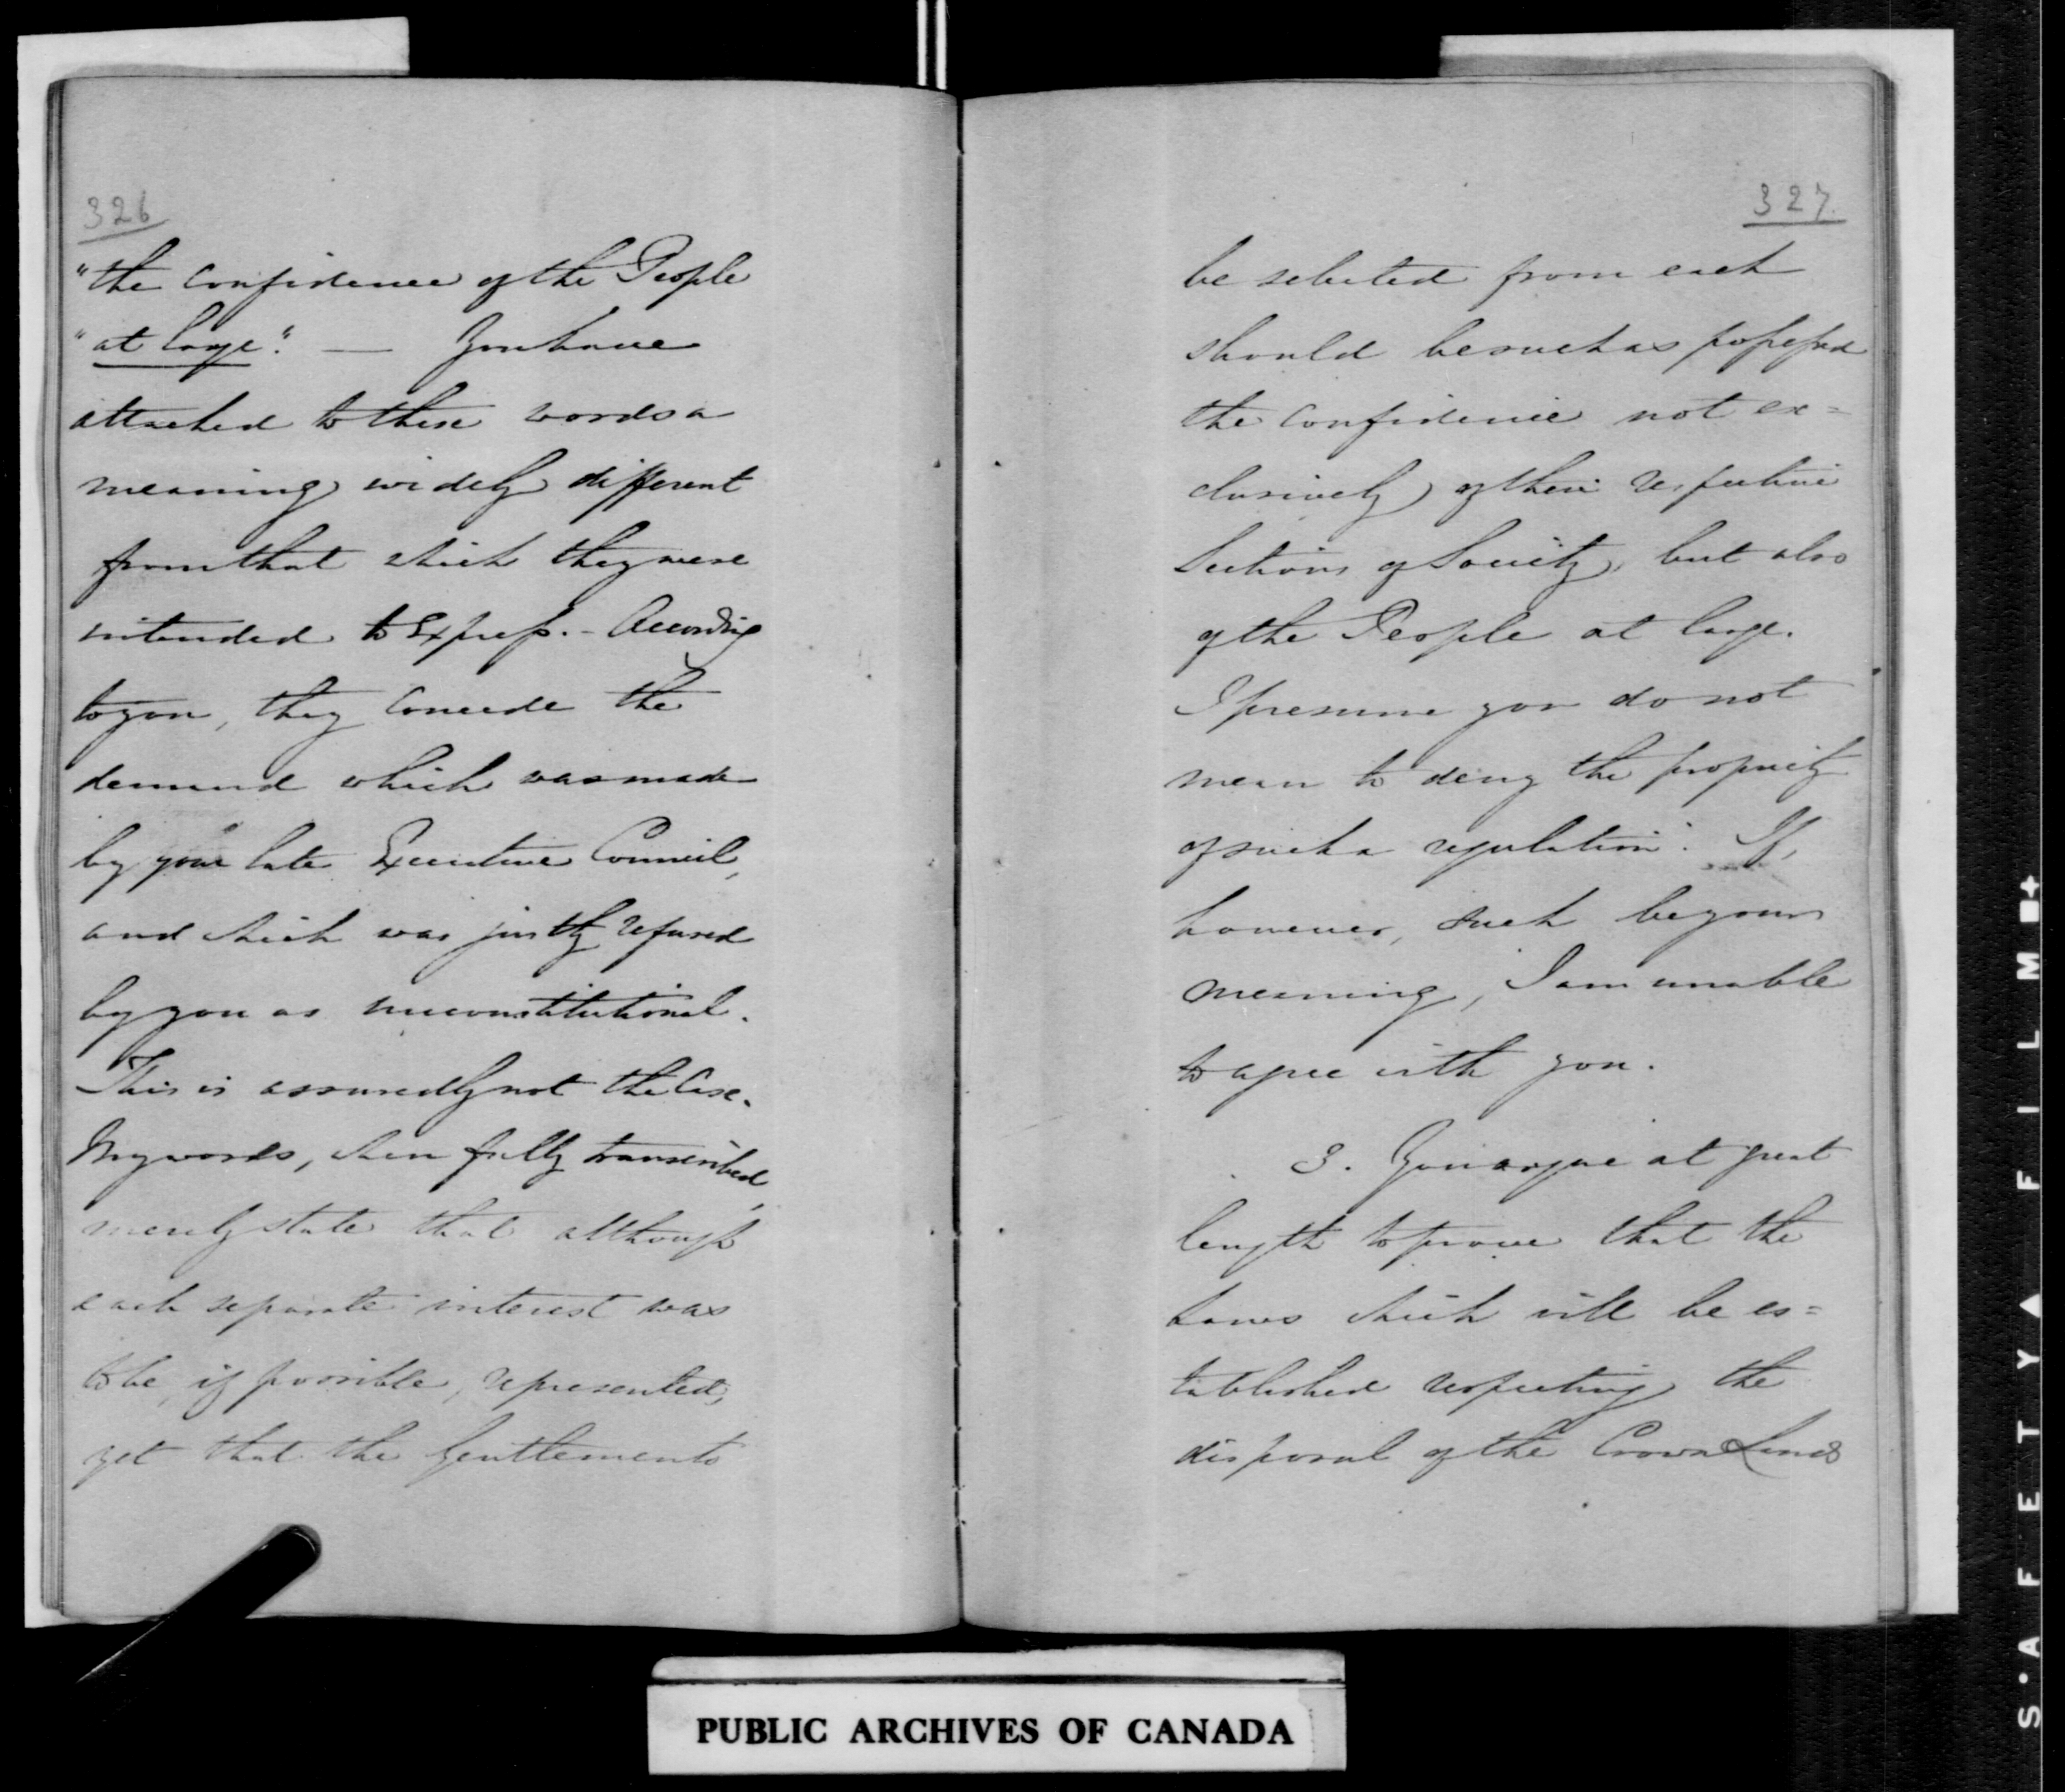 326
"the Confidence of the People
"at large". — You have
attached to these words a
meaning widely different
from that which they were
intended to Express. - According
to you, they Concede the
demand which was made
by your late Executive Council,
and which was justly refused
by you as unconstitutional.
This is assuredly not the Case.
My words, when fully transcribed,
merely state that although
each separate interest was
to be, if possible, represented,
yet that the Gentlemen to
327.
be selected from each
should be such as possessed
the Confidence not ex=
clusively of their respective
Sections of Society, but also
of the People at large.
I presume you do not
mean to deny the propriety
of such a regulation. If,
however, such be your
meaning, I am unable
to agree with you.
3. You argue at great
length to prove that the
Laws which will be es=
tablished respecting the
disposal of the Crown Lands
PUBLIC ARCHIVES OF CANADA
S'AFETY A FILM